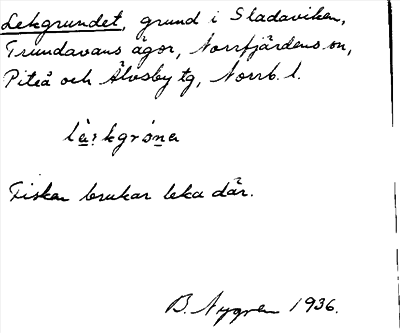 Lekgrundet, grund i Sladaviken,
Trundavans ägor, Norrfjärdens sn,
Piteå och Älvsby tg, Norrb. l.
Fisken brukar leka där.
B. Nygren 1936.